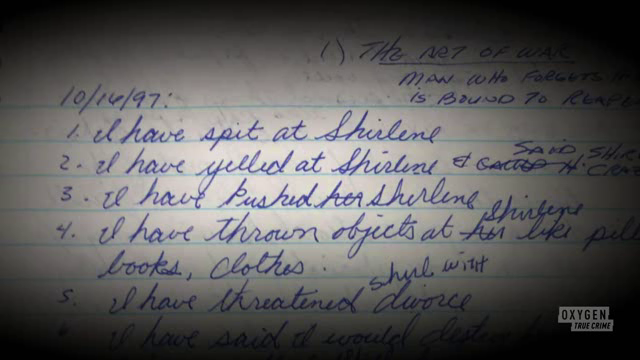 1) THE ART OF WAR
MAN WHO FORGETS
IS BOUND TO
10/16/97:
1. I have spit at Shirlene
SAID
2. I have yelled at Shirlene &
3. I have pushed her Shirlene
Shirlene
4. I have thrown objects at her like
books, clothes.
Shirl with
5. I have threatened divorce
6 I have said I would
OXYGEN
TRUE CRIME